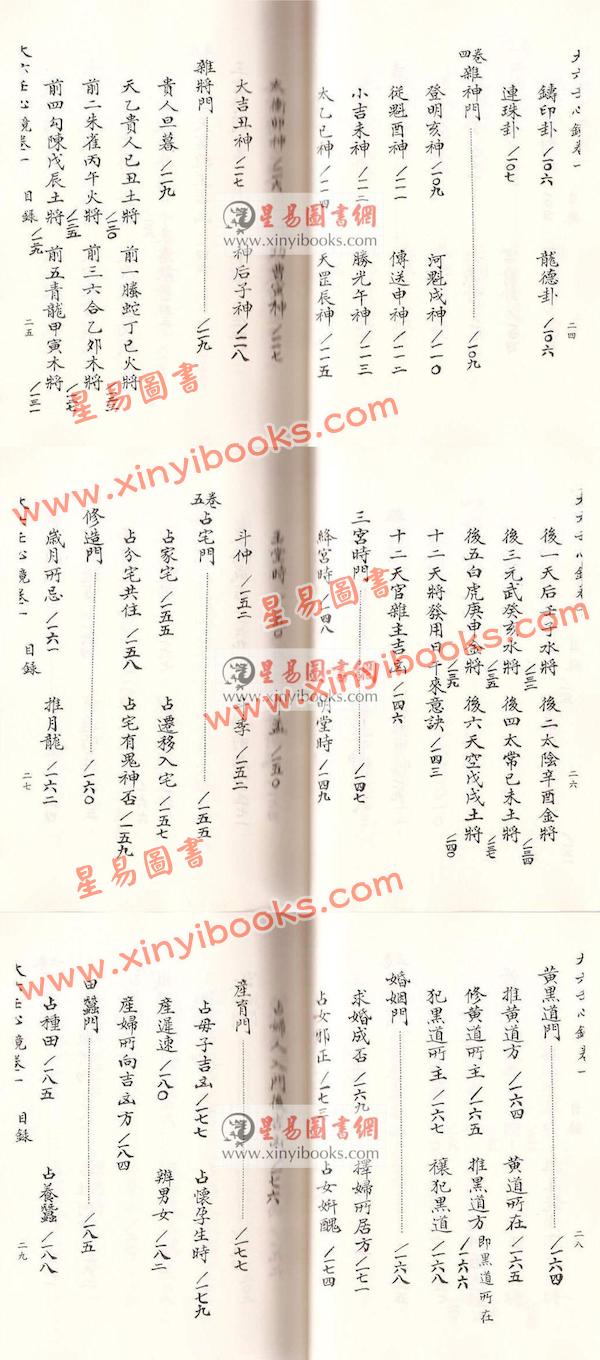 大六壬心鏡卷一
鑄印卦／一〇六　龍德卦／一〇六
連珠卦／一〇七
卷四雜神門／一〇九
登明亥神／一〇九　河魁戌神／一一〇
從魁酉神／一一一　傳送申神／一一二
小吉未神／一一二　勝光午神／一一三
太乙巳神／一一四　天罡辰神／一一五
二四
太衝卯神／一一六　功曹寅神／一一七
大吉丑神／一一七　神后子神／一一八
雜將門／一一九
貴人旦暮／一二九
天乙貴人己丑土將／一三〇　前一螣蛇丁巳火將
前二朱雀丙午火將　前三六合乙卯木將
前四勾陳戊辰土將／一二九　前五青龍甲寅木將／一三一
大六壬心鏡卷一　目錄　二五
星易圖書網
www.xinyibooks.com
星易圖書
www.xinyibooks.com
大六壬心鏡卷一
後一天后壬子水將　後二太陰辛酉金將／一三四
後三元武癸亥水將／一三三　後四太常己未土將
後五白虎庚申金將／一三五　後六天空戊戌土將／一四〇
十二天將發用日干來意訣／一四三
十二天官雜主吉凶／一四六
三宮時門／一四七
絳宮時／一四八　明堂時／一四九
二六
玉堂時
斗仲／一五二　斗季／一五二
卷五占宅門／一五五
占家宅／一五五　占遷移入宅／一五七
占分宅共住／一五八　占宅有鬼神否／一五九
修造門／一六〇
歲月所忌／一六一　推月龍／一六二
大六壬心鏡卷一　目錄　二七
星易圖書
www.xinyibooks.com
星易圖書網
www.xinyibooks.com
星易圖書
www.xinyibooks.com
大六壬心鏡卷一
黃黑道門／一六四
推黃道方／一六四　黃道所在／一六五
修黃道所主／一六五　推黑道方即黑道所在／一六六
犯黑道所主／一六七　禳犯黑道／一六八
婚姻門／一六八
求婚成否／一六九　擇婦所居方／一七一
占女邪正／一七三　占女妍醜／一七四
二八
占婦人入門　／一七六
產育門／一七七
占母子吉凶／一七七　占懷孕生時／一七九
產遲速／一八〇　辨男女／一八二
產婦所向吉凶方／一八四
田蠶門／一八五
占種田／一八五　占養蠶／一八八
大六壬心鏡卷一　目錄　二九
星易圖書網
www.xinyibooks.com